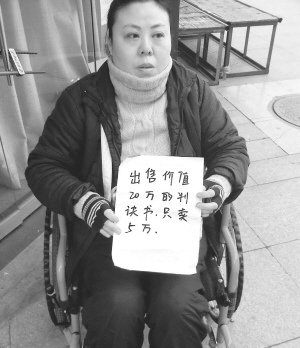 出售价值
20万的判
诀书.只卖
5万.